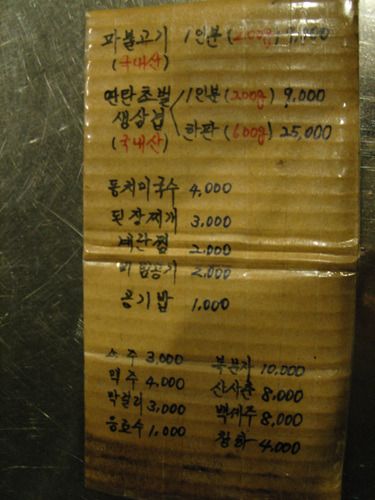 파불고기 1인분(200g) 9,000
(국내산)
연탄초벌 1인분(200g) 9,000
생삼겹
(국내산) 한판(600g) 25,000
동치미국수 4,000
된장찌개 3,000
계란찜 2,000
2,000
공기밥 1,000
소주 3,000 복분자 10,000
맥주 4,000 산사춘 8,000
막걸리 3,000 백세주 8,000
음료수 1,000 청하 4,000